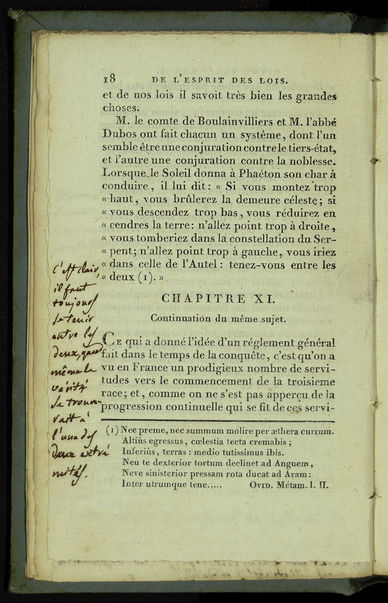 18 DE L'ESPRIT DES LOIS.
et de nos lois il savoit très bien les grandes
choses.
M. le comte de Boulainvilliers et M. l'abbé
Dubos ont fait chacun un systême, dont l'un
semble être une conjuration contre le tiers-état,
et l'autre une conjuration contre la noblesse.
Lorsque le Soleil donna à Phaéton son char à
conduire, il lui dit: « Si vous montez trop
« haut, vous brûlerez la demeure céleste; si
« vous descendez trop bas, vous réduirez en
« cendres la terre: n'allez point trop à droite,
« vous tomberiez dans la constellation du Ser-
« pent; n'allez point trop à gauche, vous iriez
« dans celle de l'Autel: tenez-vous entre les
« deux (1). »
CHAPITRE XI.
Continuation du même sujet.
Ce qui a donné l'idée d'un réglement général
fait dans le temps de la conquête, c'est qu'on a
vu en France un prodigieux nombre de servi-
tudes vers le commencement de la troisieme
race; et, comme on ne s'est pas apperçu de la
progression continuelle qui se fit de ces servi-
(1) Nec preme, nec summum molire per æthera currum.
Altiùs egressus, cœlestia tecta cremabis;
Inferiùs, terras: medio tutissimus ibis.
Neu te dexterior tortum declinet ad Anguem,
Neve sinisterior pressam rota ducat ad Aram:
Inter utrumque tene..... OVID. Métam. l. II.
C'est clair,
il faut
toujours
se tenir
entre les
deux, quand
même la
vérité
se trouve-
rait à
l'une des
deux extré
mités.